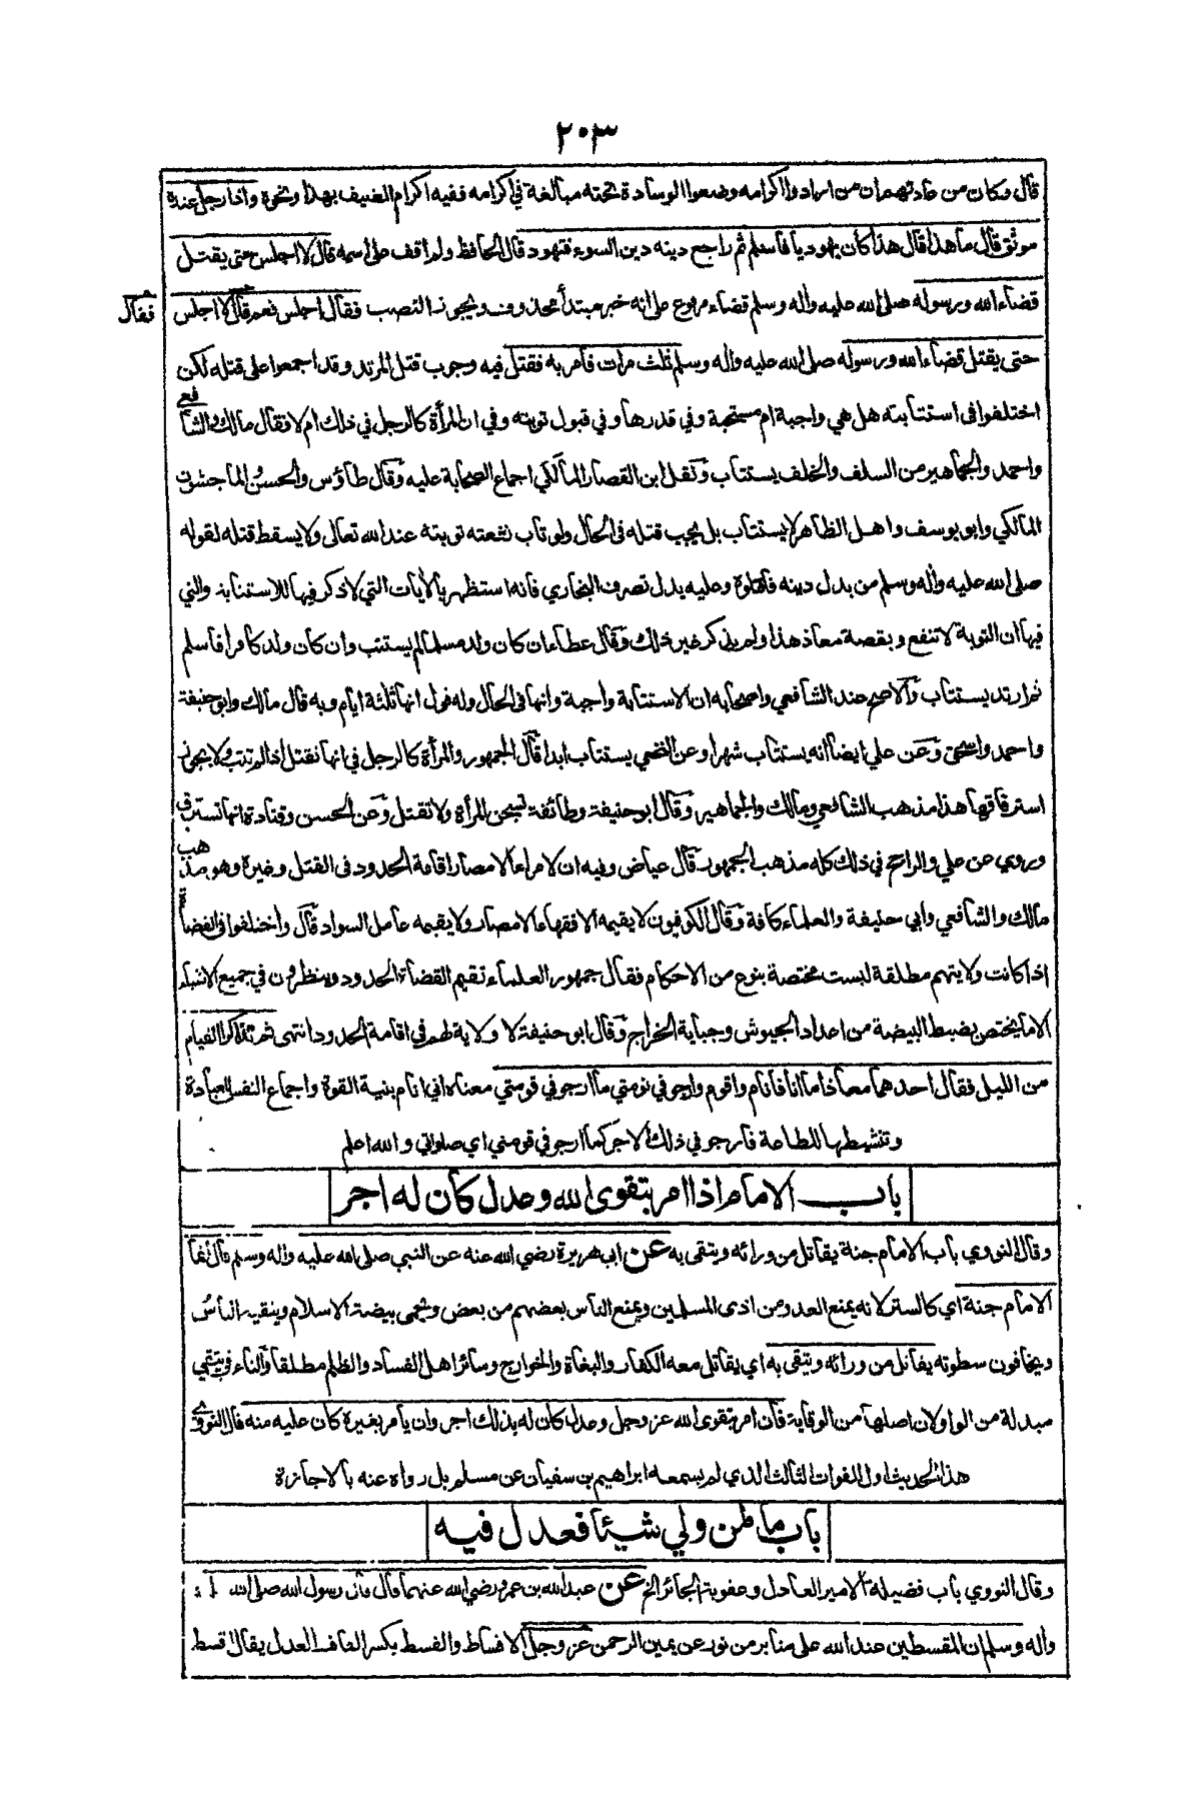 ٢٠٣
قال وكان من عادتهم ان من ارادوا اكرامه وضعوا الوسادة تحته مبالغة في اكرامه ففيه اكرام الضيف بهذا ونحوة واذا رجل عندة
موثق قال ما هذا قال هذا كان يهوديا فاسلم ثم راجع دينه دين السوء فتهود قال الحافظ ولم اقف على اسمه قال لا اجلس حتى يقتل
قضاء الله ورسوله صلى الله عليه واله وسلم قضاء مرفوع على انه خبر مبتدأ محذوف ويجوز النصب فقال اجلس نعم قال لا اجلس
فقال
حتى يقتل قضاء الله ورسوله صلى الله عليه واله وسلم ثلث مرات فامر به فقتل فيه وجوب قتل المرتد وقد اجمعوا على قتله لكن
اختلفوا فى استتابته هل هي واجبة ام مستحبة وفي قدرها وفي قبول توبته وفي ان المرأة كالرجل في ذلك ام لا فقال مالك والشافعي
واحمد والجماهير من السلف والخلف يستتاب ونقل ابن القصار المالكي اجماع الصحابة عليه وقال طاؤس والحسن والماجشون
المالكي وابو يوسف واهل الظاهر لا يستتاب بل يجب قتله فى الحال ولو تاب نفعته توبته عند الله تعالى ولا يسقط قتله لقوله
صلى الله عليه واله وسلم من بدل دينه فاقتلوة وعليه يدل تصرف البخاري فانه استظهر بالأيات التي لا ذكر فيها للاستتابة والتي
فيها ان التوبة لا تنفع وبقصة معاذ هذا ولم يذكر غير ذلك وقال عطاء ان كان ولد مسلما لم يستتب وان كان ولد كافرا فاسلم
ثم ارتد يستتاب والاصح عند الشافعي واصحابه ان الاستتابة واجبة وانها فى الحال وله قول انها ثلثة ايام وبه قال مالك وابو حنيفة
واحمد واسحق وعن علي ايضا انه يستتاب شهرا وعن النخعي يستتاب ابدا قال الجمهور والمرأة كالرجل في انها تقتل اذا لم تتب ولا يجوز
استرقاقها هذا مذهب الشافعي ومالك والجماهير وقال ابو حنيفة وطائفة تسجن المرأة ولا تقتل وعن الحسن وقتادة انها تسترق
وروي عن علي والراجح في ذلك كله مذهب الجمهور قال عياض وفيه ان لامراء الامصار اقامة الحدود فى القتل وغيرة وهو مذهب
مالك والشافعي وابي حنيفة والعلماء كافة وقال الكوفيون لا يقيمه الا فقهاء الامصار ولا يقيمه عامل السواد قال واختلفوا فى القضاة
اذا كانت ولايتهم مطلقة ليست مختصة بنوع من الاحكام فقال جمهور العلماء تقيم القضاة الحدود وينظرون في جميع الاشياء
الا ما يختص بضبط البيضة من اعداد الجيوش وجباية الخراج وقال ابو حنيفة لا ولاية لهم في اقامة الحدود انتهى ثم تذاكرا القيام
من الليل فقال احدهما معاذ اما انا فانام واقوم وارجو في نومتي ما ارجو في قومتي معناه اني انام بنية القوة واجماع النفس للعبادة
وتنشيطها للطاعة فارجو في ذلك الاجر كما ارجو في قومتي اي صلواتي والله اعلم
باب الامام اذا امر بتقوى الله وعدل كان له اجر
وقال النووي باب الامام جنة يقاتل من ورائه ويتقى به عن ابى هريرة رضي الله عنه عن النبي صلى الله عليه واله وسلم قال انما
الامام جنة اي كالستر لانه يمنع العدو من اذى المسلمين ويمنع الناس بعضهم من بعض ويحمى بيضة الاسلام ويتقيه الناس
ويخافون سطوته يقاتل من ورائه ويتقى به اي يقاتل معه الكفار والبغاة والخوارج وسائر اهل الفساد والظلم مطلقا والتاء في يتقي
مبدلة من الواو لان اصلها من الوقاية فان امر بتقوى الله عز وجل وعدل كان له بذلك اجر وان يأمر بغيرة كان عليه منه قال النووي
هذا الحديث اول الفوات الثالث الذي لم يسمعه ابراهيم بن سفيان عن مسلم بل رواه عنه بالاجازة
باب ما لمن ولي شيئا فعدل فيه
وقال النووي باب فضيلة الامير العادل وعقوبة الجائر الخ عن عبد الله بن عمرو رضي الله عنهما قال قال رسول الله صلى الله
واله وسلم ان المقسطين عند الله على منابر من نور عن يمين الرحمن عز وجل الاقساط والقسط بكسر القاف العدل يقال اقسط